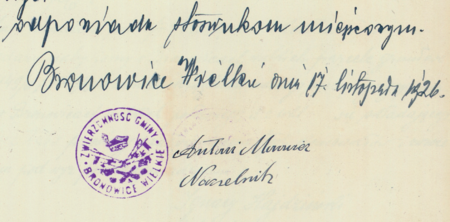 odpowiada stosunkom miejscowym.
Bronowice Wielkie dnia 17. listopada 1926.
ZWIERZCHNOŚĆ GMINY
BRONOWICE WIELKIE
Antoni
Naczelnik